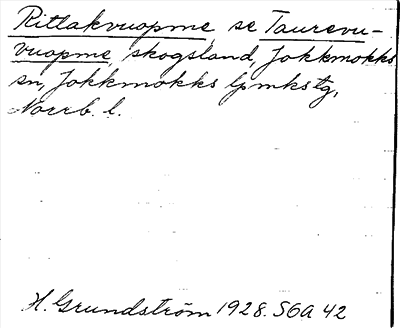 Ritlakvuopme, se Taurevu-
vuopme, skogsland, Jokkmokks
sn, Jokkmokks lpmkstg,
Norrb. l.
H. Grundström 1928. SGA 42